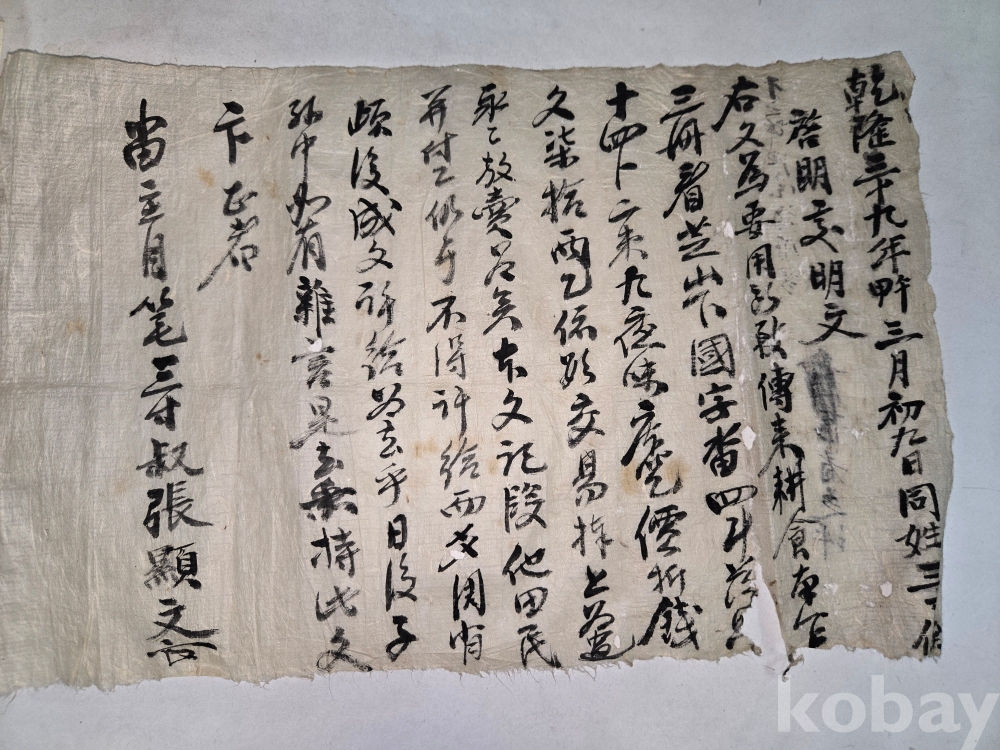 乾隆三十九年甲午三月初九日同姓三寸
啓明交明文
右文爲要用所致傳来耕食
三冊省芝山下國字畓四斗
十四卜二束九 價折錢
文柒拾兩乙依數交易捧上爲
永永放賣爲矣本文記段他田民
并付乙仍于不得許給
後成文許給爲去乎日後子
孫中如有雜言是去等持此文
卞正者
畓主自筆三寸叔張顯文
kobay